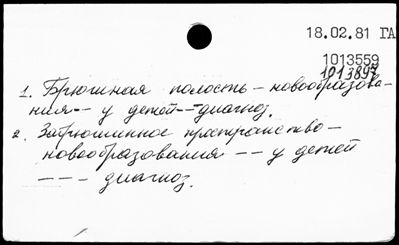 18.02.81 ГА
1013559
1013897
1. Брюшная полость - новообразова-
ния -- у детей -- диагноз.
2. Забрюшинное пространство -
новообразования -- у детей
--- диагноз.